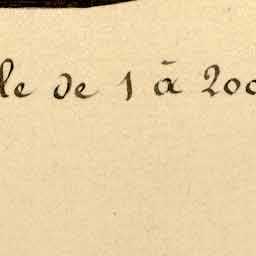 le de 1 à 200